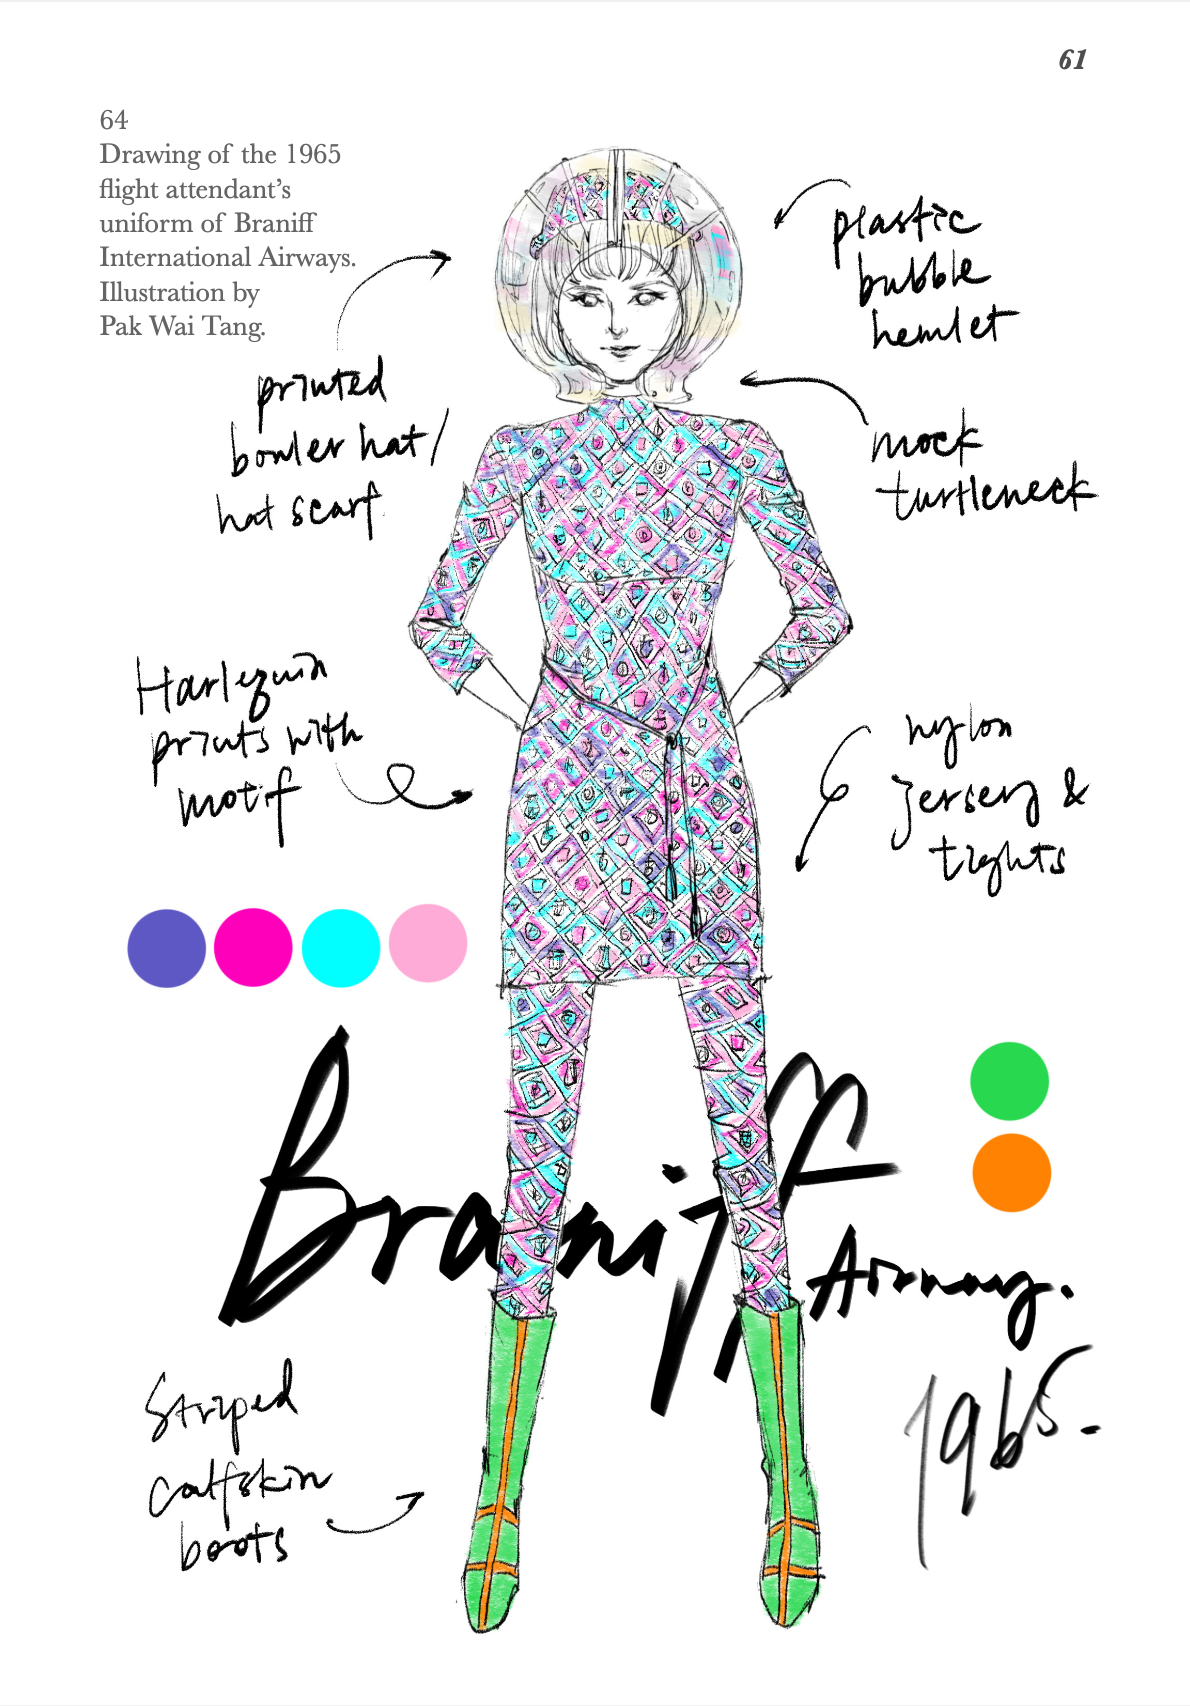 61
64
Drawing of the 1965
flight attendant's
uniform of Braniff
International Airways.
Illustration by
Pak Wai Tang.
plastic
bubble
hemlet
printed
bowler hat/
hat scarf
mock
turtleneck
Harlequin
prints with
motif
nylon
jersey &
tights
Braniff
Airway.
1965.
Striped
calfskin
boots